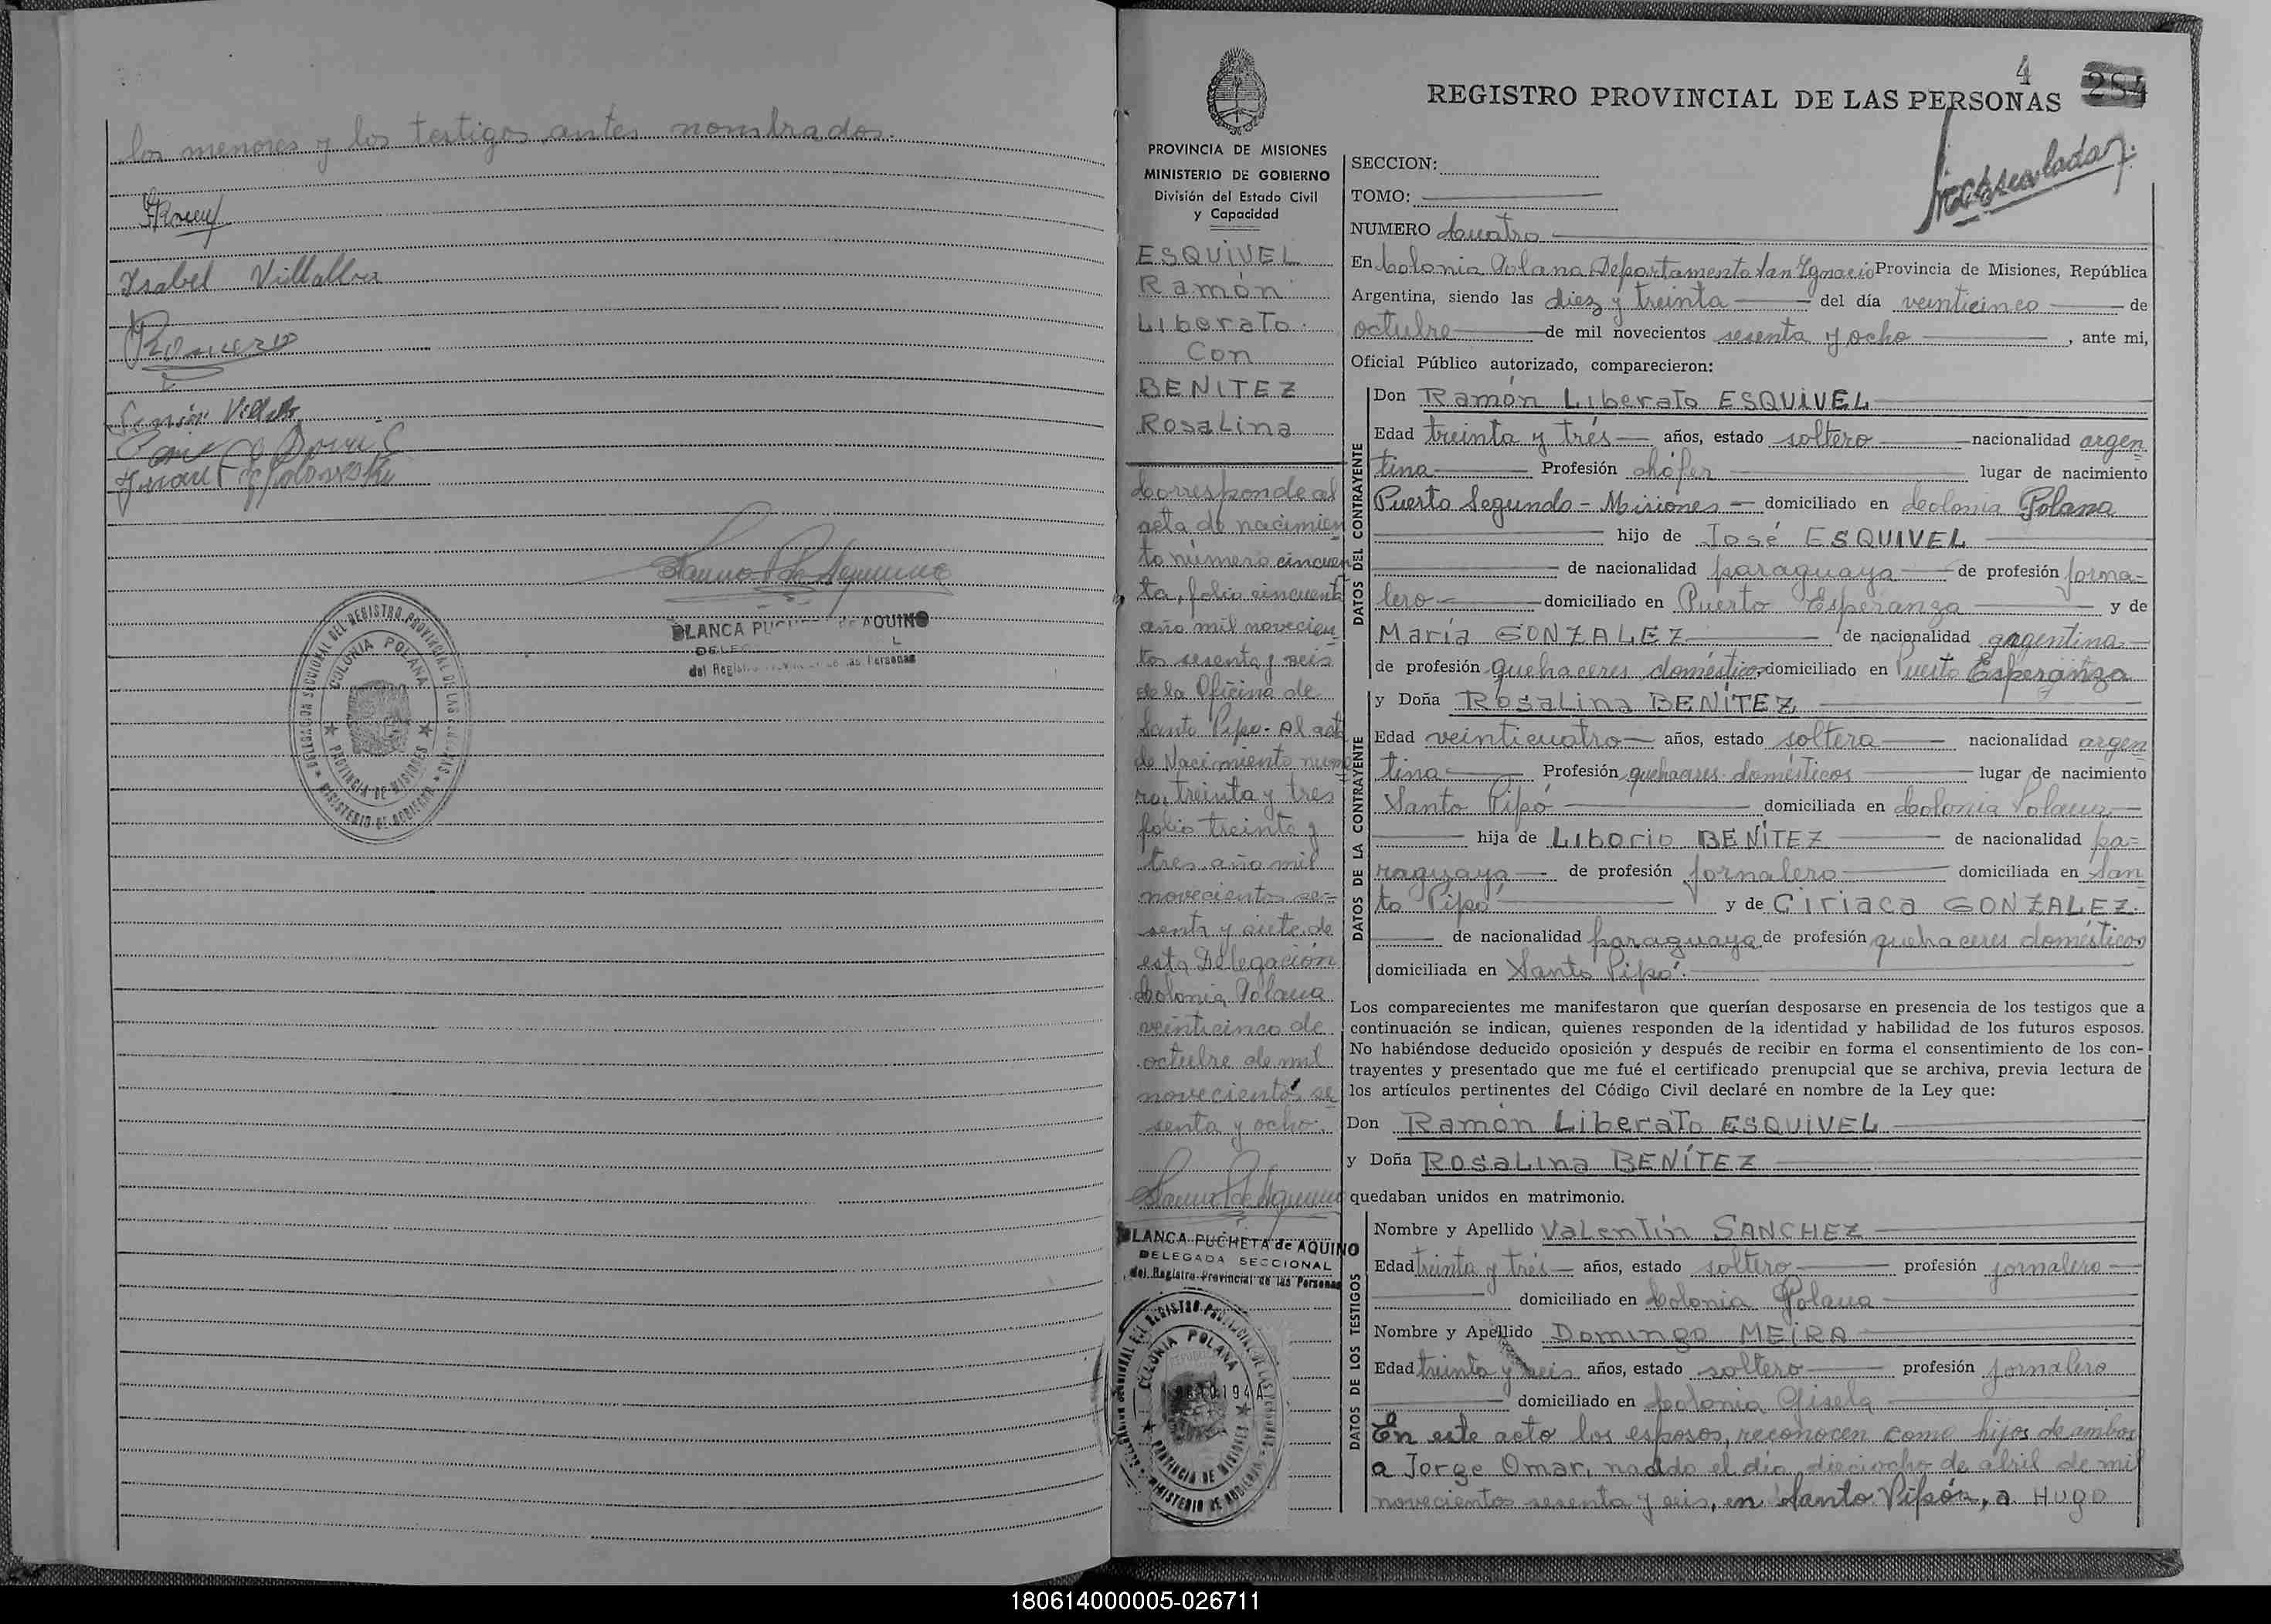 los menores y los testigos antes nombrados.
Isabel Villalba
Romero
BLANCA PUCHETA de AQUINO
del Registro Provincial de las Personas
DELEGACION SECCIONAL DEL REGISTRO PROVINCIAL DE LAS PERSONAS
COLONIA POLANA
PROVINCIA DE MISIONES
MINISTERIO DE GOBIERNO
4 284
REGISTRO PROVINCIAL DE LAS PERSONAS
PROVINCIA DE MISIONES
MINISTERIO DE GOBIERNO
División del Estado Civil
y Capacidad
ESQUIVEL
Ramón
Liberato
Con
BENITEZ
Rosalina
Corresponde al
acta de nacimien
to número cincuen
ta, folio cincuenta
año mil novecien
tos sesenta y seis
de la Oficina de
Santo Pipo. Al acta
de Nacimiento núme
ro, treinta y tres
folio treinta y
tres año mil
novecientos se=
senta y siete de
esta Delegación
Colonia Polana
veinticinco de
octubre de mil
novecientos se
senta y ocho.
BLANCA PUCHETA de AQUINO
DELEGADA SECCIONAL
del Registro Provincial de las Personas
COLONIA POLANA
PROVINCIA DE MISIONES
MINISTERIO DE GOBIERNO
SECCION:
TOMO:
NUMERO Cuatro
En Colonia Polana Departamento San Ignacio Provincia de Misiones, República
Argentina, siendo las diez y treinta del día veinticinco de
octubre de mil novecientos sesenta y ocho, ante mi,
Oficial Público autorizado, comparecieron:
DATOS DEL CONTRAYENTE
Don Ramón Liberato ESQUIVEL
Edad treinta y trés años, estado soltero nacionalidad argen
tina Profesión chófer lugar de nacimiento
Puerto Segundo - Misiones - domiciliado en Colonia Polana
hijo de José ESQUIVEL
de nacionalidad paraguaya de profesión jorna-
lero domiciliado en Puerto Esperanza y de
María GONZALEZ de nacionalidad argentina
de profesión quehaceres domésticos domiciliado en Puerto Esperanza
DATOS DE LA CONTRAYENTE
y Doña Rosalina BENÍTEZ
Edad veinticuatro años, estado soltera nacionalidad argen
tina Profesión quehaceres domésticos lugar de nacimiento
Santo Pipó domiciliada en Colonia Polana
hija de Liborio BENÍTEZ de nacionalidad pa=
raguaya de profesión jornalero domiciliada en San
to Pipó y de Ciriaca GONZALEZ.
de nacionalidad paraguaya de profesión quehaceres domésticos
domiciliada en Santo Pipó.
Los comparecientes me manifestaron que querían desposarse en presencia de los testigos que a
continuación se indican, quienes responden de la identidad y habilidad de los futuros esposos.
No habiéndose deducido oposición y después de recibir en forma el consentimiento de los con-
trayentes y presentado que me fué el certificado prenupcial que se archiva, previa lectura de
los artículos pertinentes del Código Civil declaré en nombre de la Ley que:
Don Ramón Liberato ESQUIVEL
y Doña Rosalina BENÍTEZ
quedaban unidos en matrimonio.
DATOS DE LOS TESTIGOS
Nombre y Apellido Valentín SANCHEZ
Edad treinta y trés años, estado soltero profesión jornalero
domiciliado en Colonia Polana
Nombre y Apellido Domingo MEIRA
Edad treinta y seis años, estado soltero profesión jornalero
domiciliado en Colonia Gisela
En este acto los esposos, reconocen como hijos de ambos
a Jorge Omar, nacido el día dieciocho de abril de mil
novecientos sesenta y seis, en Santo Pipó, a Hugo
180614000005-026711